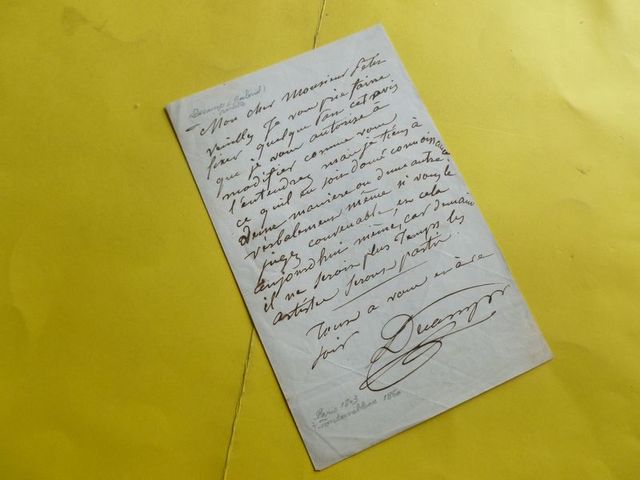 Decamps (Gabriel)
Mon cher Monsieur
veuillez je vous prie faire
fixer quelque part cet avis
que je vous autorise à
modifier comme vous
l'entendrez mais je tiens à
ce qu'il en soit donné connoissance
d'une manière ou d'une autre
verbalement même si vous le
jugez convenable, et cela
aujourd'hui même, car demain
il ne seroit plus temps les
artistes seront partis.
Tout à vous
soir Decamps
Paris 1803
Fontainebleau 1860